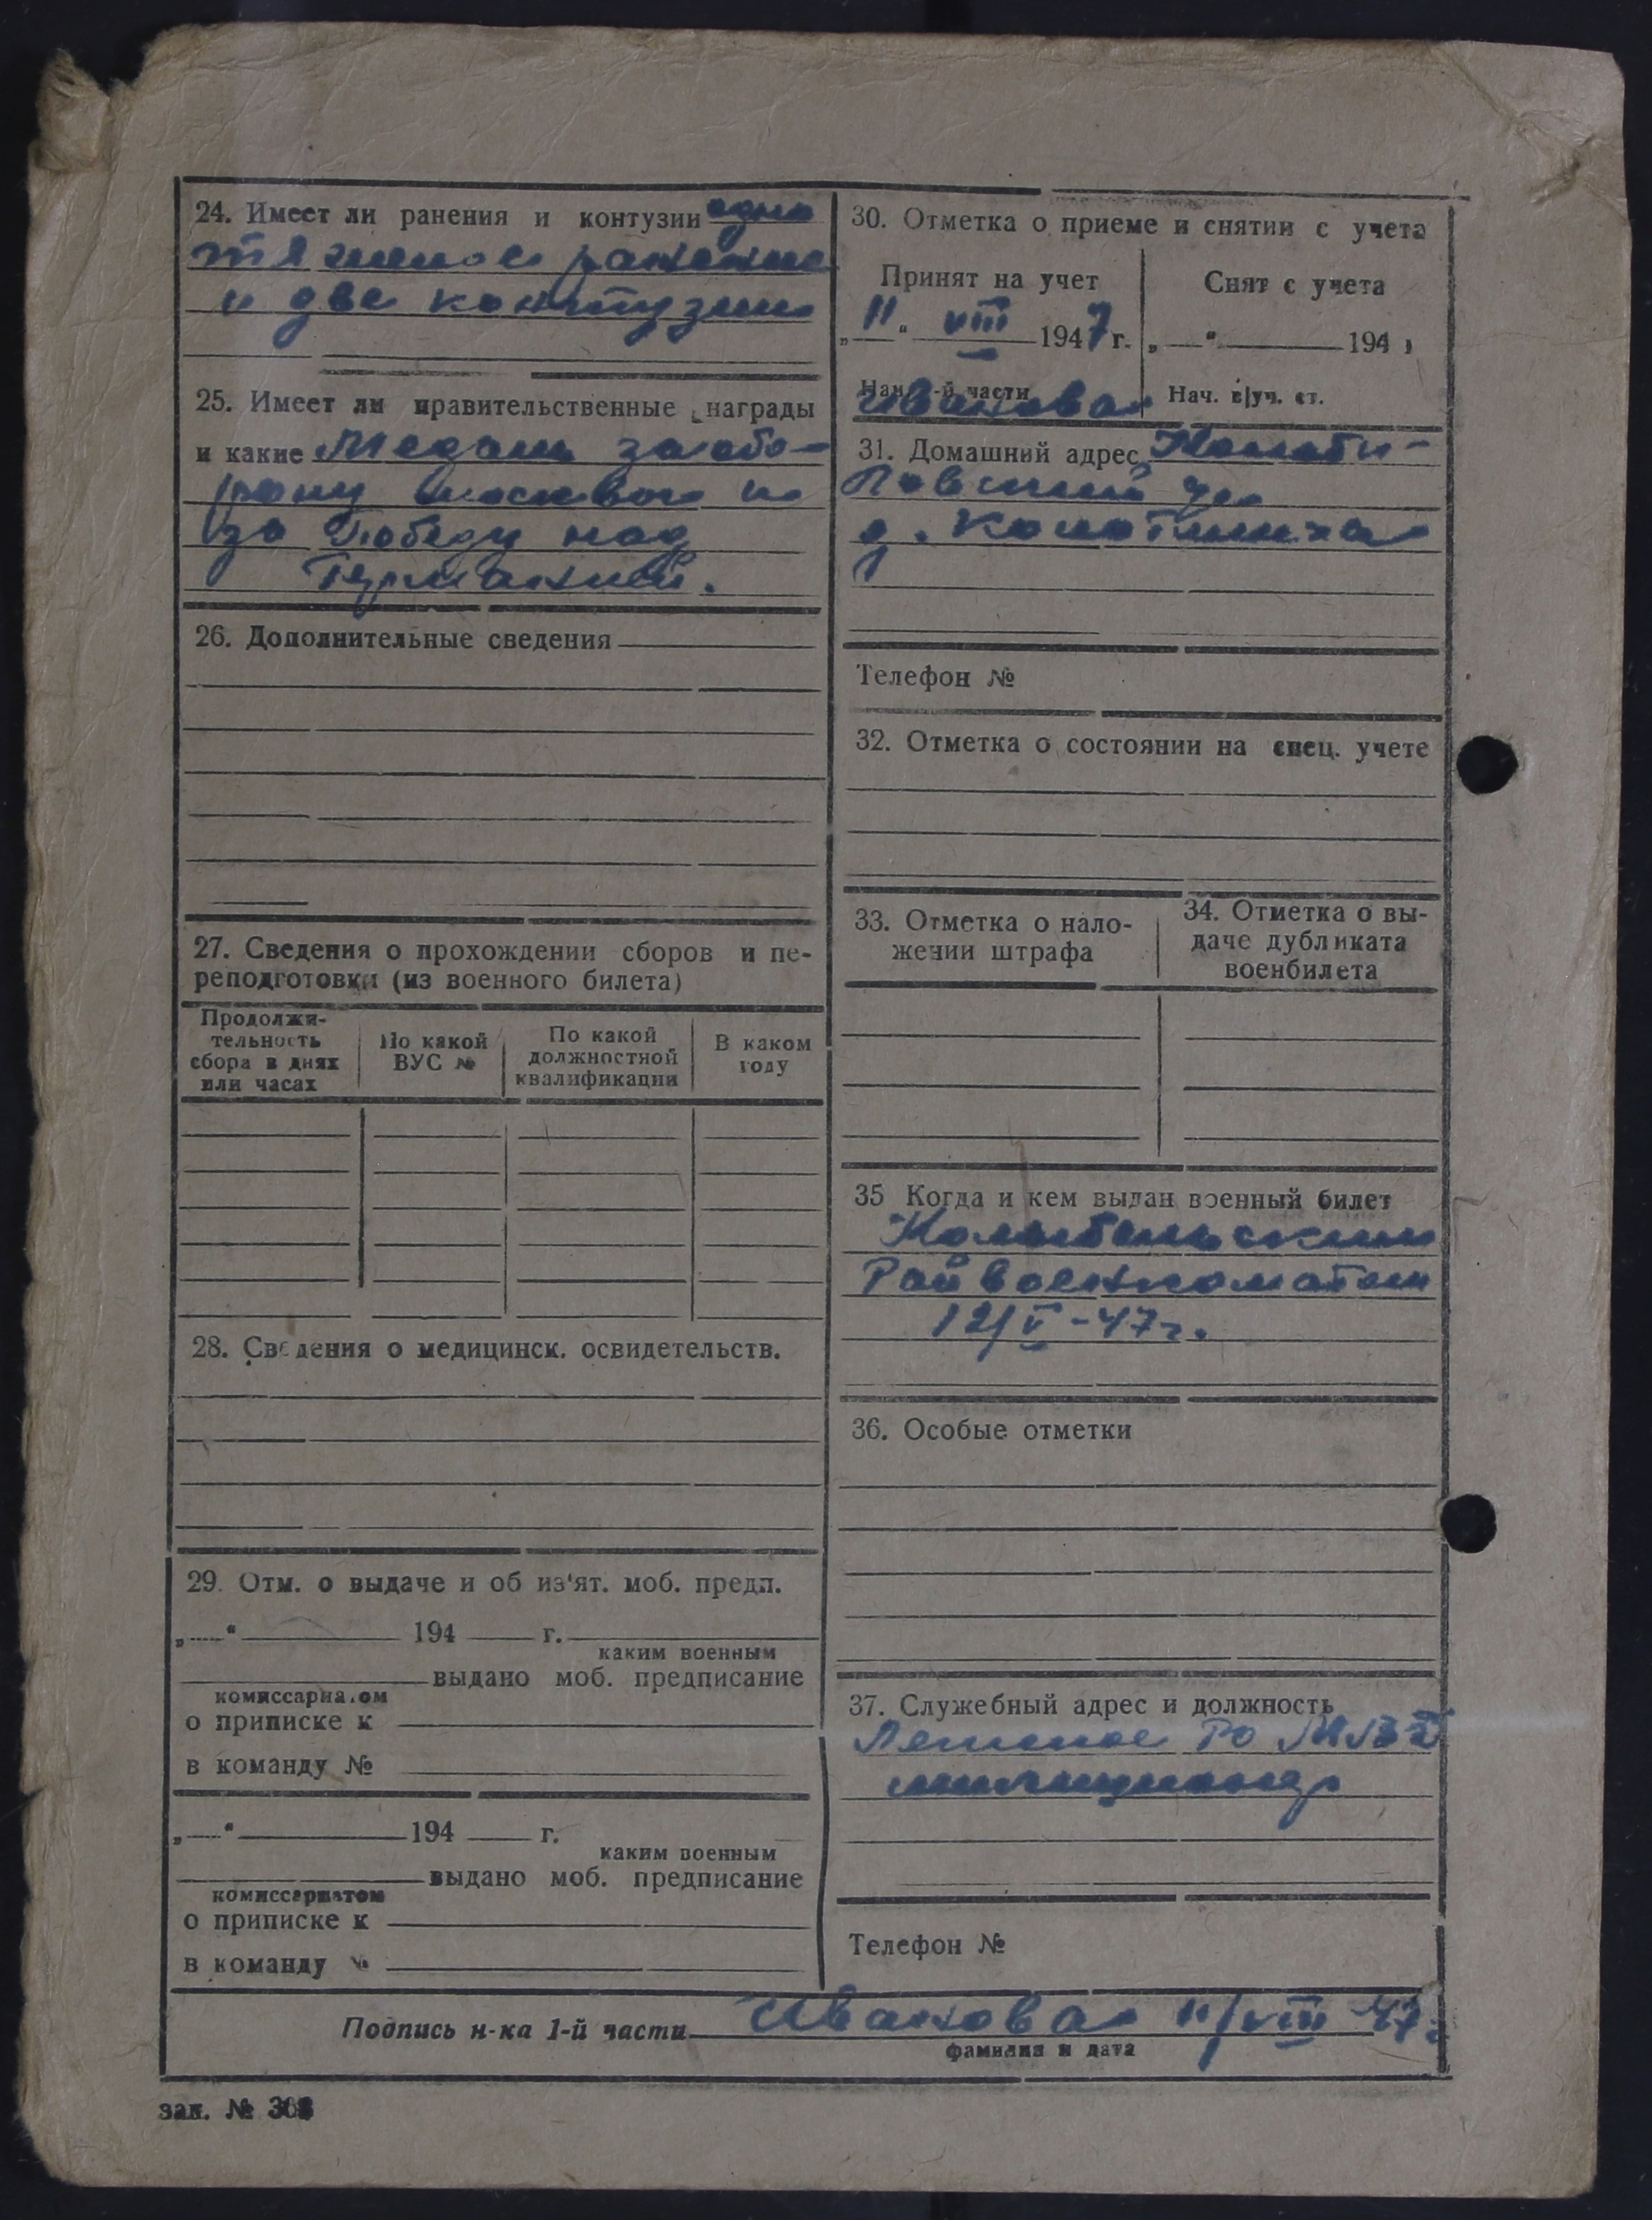 24. Имеет ли ранения и контузии одно
тяжелое ранение
и две контузии
25. Имеет ли правительственные награды
и какие Медаль за обо-
рону Москвы и
за Победу над
Германией.
26. Дополнительные сведения
27. Сведения о прохождении сборов и пе-
реподготовки (из военного билета)
Продолжи-
тельность
сбора в днях
или часах
По какой
ВУС №
По какой
должностной
квалификации
В каком
году
28. Сведения о медицинск. освидетельств.
29. Отм. о выдаче и об из'ят. моб. предп.
„—“ 194 г.
каким военным
выдано моб. предписание
комиссариатом
о приписке к
в команду №
„—“ 194 г.
каким военным
выдано моб. предписание
комиссариатом
о приписке к
в команду №
30. Отметка о приеме и снятии с учета
Принят на учет
„11“ VIII 1947 г.
Нач. 1-й части
Иванова
Снят с учета
„—“ 194
Нач. в|уч. ст.
31. Домашний адрес
д.
Телефон №
32. Отметка о состоянии на спец. учете
33. Отметка о нало-
жении штрафа
34. Отметка о вы-
даче дубликата
военбилета
35 Когда и кем выдан военный билет
Райвоенкоматом
12/V-47г.
36. Особые отметки
37. Служебный адрес и должность
РО МВД
милиционер
Телефон №
Подпись н-ка 1-й части Иванова 11/VIII 47г
фамилия и дата
зак. №